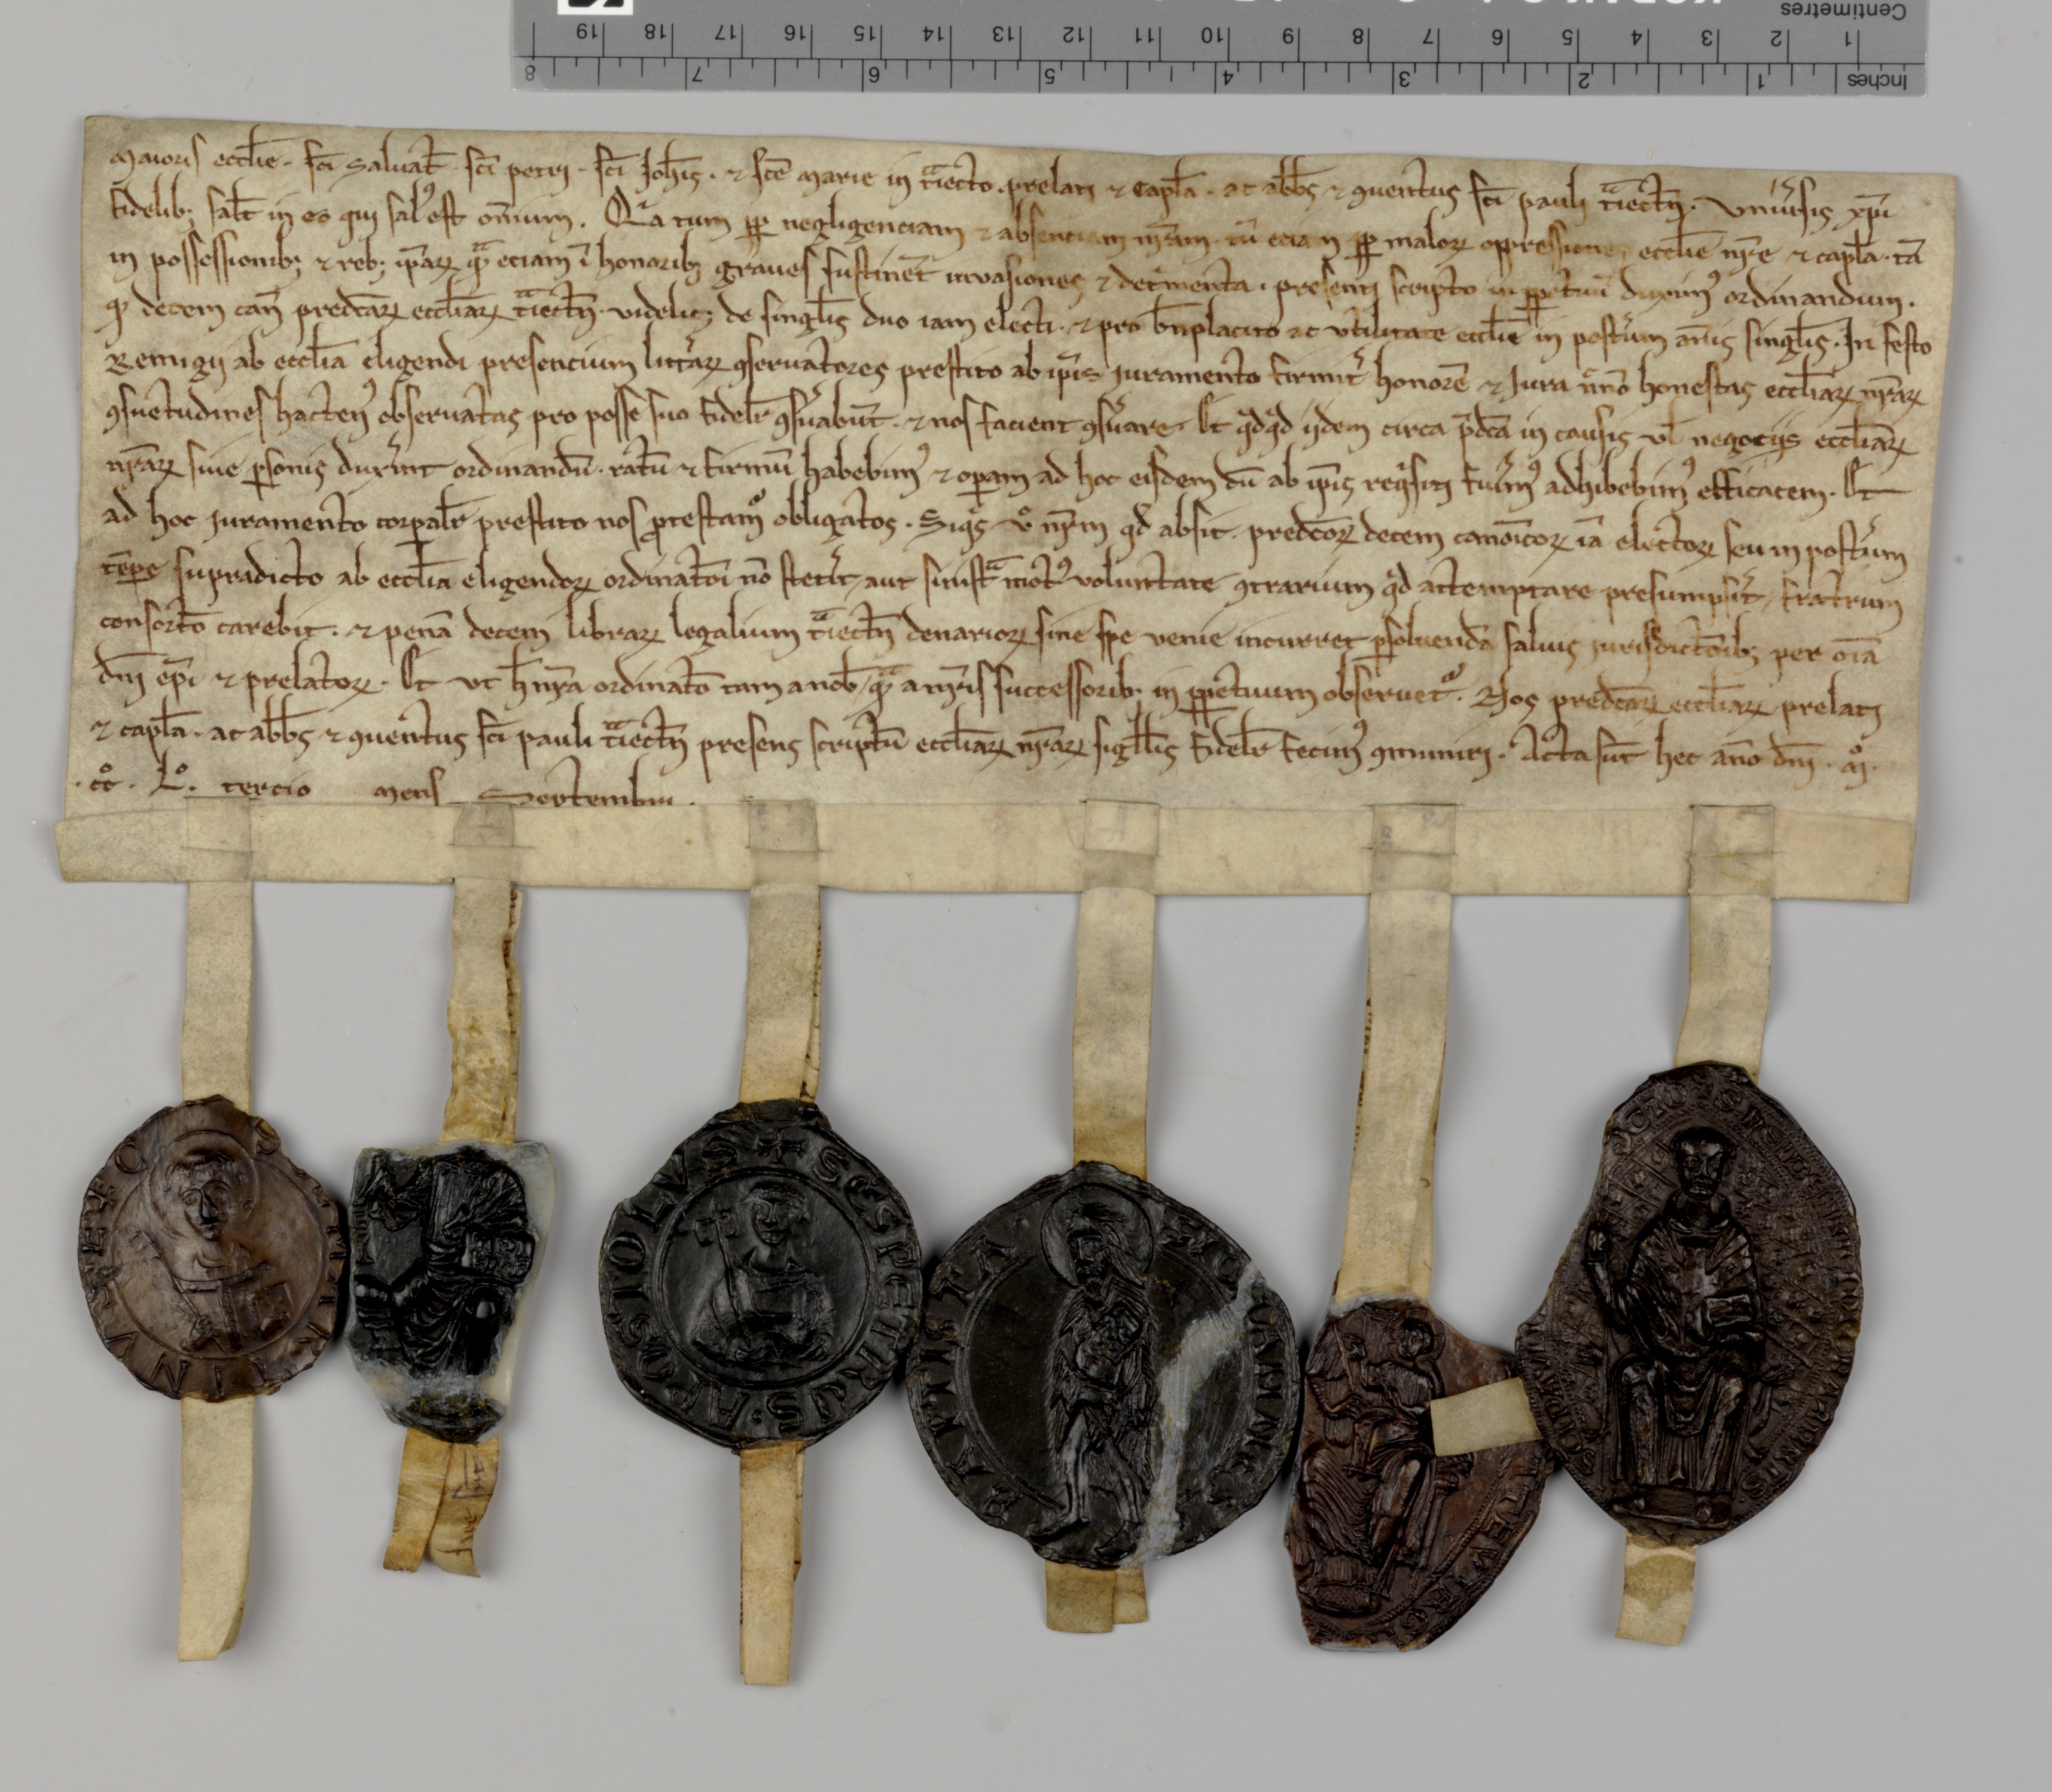 Centimetres
1 2 3 4 5 6 7 8 9 10 11 12 13 14 15 16 17 18 19
Inches 1 2 3 4 5 6 7 8
Maioris eccl̄ie · sc̄i Saluat̄ · sc̄i petri · sc̄i Joh̄is · ⁊ sc̄e Marie in t̄iecto prelati ⁊ Capl̄a · ac abb̄s ⁊ ꝯuentus sc̄i pauli t̄iectn̄ · Vniu̾sis xp̄i
fidelib; salt̄ in eo qui sal᷒ est om̄ium . Q̄a tum ꝓp negligenciam ⁊ absenciam nr̄am · tū eciam ꝓp maloꝝ oppressiones eccl̄ie nr̄e ⁊ capl̄a · tā
in possessionib; ⁊ reb; ip̄aꝝ qͣ eciam ī honorib; graues sustinēt inuasiones ⁊ det̾menta · presenti scripto in ꝑpetuū duxim᷒ ordinandum .
ꝙ decem can̄ predc̄aꝝ eccl̄iaꝝ t̄iectn̄ · videlic; de singl̄is duo iam electi · ⁊ pro b̄nplacito ac vtilitate eccl̄ie in post̾um an̄is singl̄is · In festo
Remigij ab eccl̄ia eligendi presencium litt̾aꝝ ꝯseruatores prestito ab ip̄is iuramento firmit̾ honorē ⁊ Jura nͨnō honestas eccl̄iaꝝ nr̄aꝝ
ꝯsuetudines hacten᷒ obseruatas pro posse suo fidelr̄ ꝯs̾uabūt · ⁊ nos facient ꝯs̾uare . Et qͥdqͥd ijdem circa p̄dc̄a in causis vl̄ negocijs eccl̄iaꝝ
nr̄aꝝ siue ꝑsonis dux̾int ordinandū · ratū ⁊ firmū habebim᷒ ⁊ oꝑam ad hoc eisdem cū ab ip̄is reqͥsiti fu̾im᷒ adhibebim᷒ efficacem . Et
ad hoc iuramento corꝑalr̄ prestito nos ꝓtestamͬ obligatos . Siqͥs vͦ nr̄m qd̄ absit · predc̄oꝝ decem canōicoꝝ iā electoꝝ seu in post̾um
tēpe supradicto ab eccl̄ia eligendoꝝ ordinatōi nō stet̾it aut sinistͣ mot᷒ voluntate ꝯtrarium qͥd attemptare presumps̾it / fratrum
consortō carebit . ⁊ penā decem libraꝝ legalium t̄iectn̄ denarioꝝ sine spe venie incurret ꝑsoluendā saluis iurisdictōib; per oīa
dn̄i ep̄i ⁊ prelatoꝝ . Et vt h̄ nr̄a ordinatō tam a nob̄ / qͣ a nr̄is successorib; in ꝑpetuum obseruetͬ . Nos predc̄aꝝ eccl̄iaꝝ prelati
⁊ capl̄a · ac abb̄s ⁊ ꝯuentus sc̄i pauli t̄iectn̄ presens scriptū eccl̄iaꝝ nr̄aꝝ sigill̄is fidelr̄ fecim᷒ ꝯmuniri . Acta sūt hec an̄o dn̄i . mͦ .
· ccͦ . Lͦ . tercio mens Septembri .
S ... MARTINVS EPC
+ SCS PETRVS APOSTOLVS
IOHANNES BAPTISTA